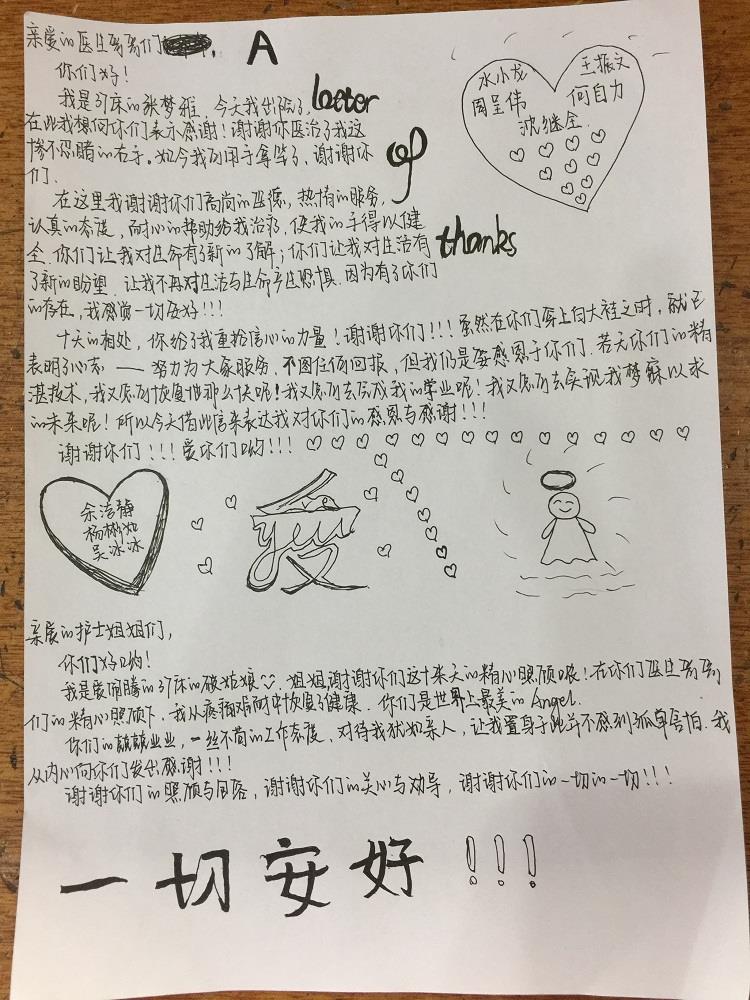 亲爱的医生哥哥们
A
你们好！
我是37床的张梦雅，今天我出院了，
letter
在此我想向你们表示感谢！谢谢你医治了我这
惨不忍睹的右手。如今我可用于拿笔了，谢谢你
们．
of
水小龙
王振文
周呈伟
何自力
沈继全
在这里我谢谢你们高尚的医德，热情的服务，
认真的态度，耐心的帮助给我治疗，使我的手得以健
全．你们让我对生命有了新的了解；你们让我对生活有
thanks
了新的盼望．让我不再对生活与生命产生恐惧．因为有了你们
的存在，我感觉一切安好！！！
十天的相处，你给了我重拾信心的力量！谢谢你们！！！虽然在你们穿上白大褂之时，就已
表明了心志——努力为大家服务，不图任何回报，但我仍是要感恩于你们．若无你们的精
湛技术，我又怎可恢复地那么快呢！我又怎可去完成我的学业呢！我又怎可去实现我梦寐以求
的未来呢！所以今天借此信来表达我对你们的感恩与感谢！！！
谢谢你们！！！爱你们哟！！！
余洁静
杨彬如
吴冰冰
爱
you
亲爱的护士姐姐们，
你们好哟！
我是爱闹腾的37床的破姑娘．姐姐谢谢你们这十来天的精心照顾哦！在你们医生哥哥
们的精心照顾下，我从疼痛难耐中恢复了健康．你们是世界上最美的Angel．
你们的兢兢业业，一丝不苟的工作态度，对待我犹如亲人，让我置身于此并不感到孤单害怕．我
从内心向你们发出感谢！！！
谢谢你们的照顾与回答，谢谢你们的关心与劝导，谢谢你们的一切的一切！！！
一切安好！！！